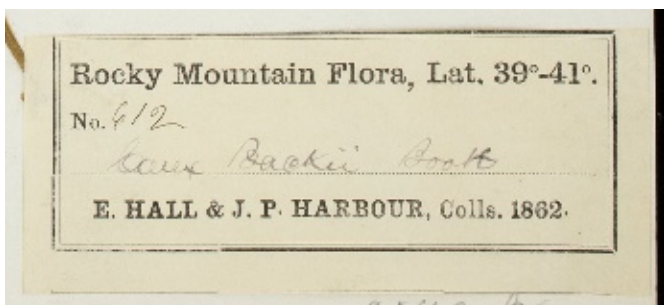 Rocky Mountain Flora, Lat. 39°-41°.
No. 612
Carex Backii Boott
E. HALL & J. P. HARBOUR, Colls. 1862.